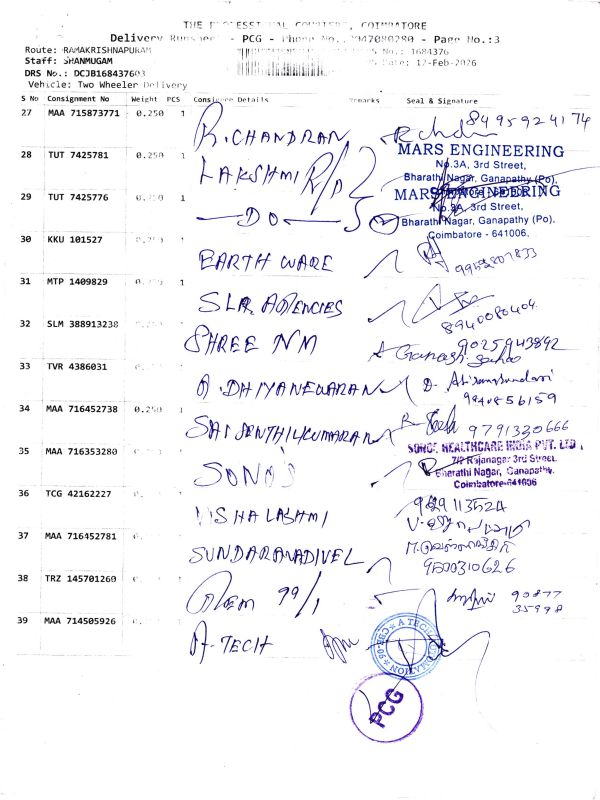 THE PROFESSIONAL COURIERS, COIMBATORE
Delivery Runsheet - PCG - Phone No.: 9047080280 - Page No.:3
Route: RAMAKRISHNAPURAM
No.: 1684376
Staff: SHANMUGAM
Date: 12-Feb-2026
DRS No.: DCJB168437603
Vehicle: Two Wheeler Delivery
S No Consignment No Weight PCS Consignee Details Remarks Seal & Signature
27 MAA 715873771 0.250 1 R. CHANDRAN 8495924174
28 TUT 7425781 0.250 1 LAKSHMI R/P
MARS ENGINEERING
No.3A, 3rd Street,
Bharathi Nagar, Ganapathy (Po),
29 TUT 7425776 0.250 1 — DO —
MARS ENGINEERING
No.3A, 3rd Street,
Bharathi Nagar, Ganapathy (Po).
Coimbatore - 641006.
30 KKU 101527 1 EARTH WARE 9952807833
31 MTP 1409829 1 SLR AGENCIES 8940080404
32 SLM 388913238 SHREE NM 9025943892
33 TVR 4386031 1 A. DHIYANESWARAN
34 MAA 716452738 0.250 1 SAI SENTHILKUMARAN 9791330666
35 MAA 716353280 SONO'S
SONOS HEALTHCARE INDIA PVT. LTD.
7/2 Rajanagar 3rd Street
Bharathi Nagar, Ganapathy,
Coimbatore-641006
36 TCG 42162227 VISHALASHMI
37 MAA 716452781 SUNDARAVADIVEL 9500310626
38 TRZ 145701260 99/1 90877
35998
39 MAA 714505926 1 A-TECH
A TECH
PCG